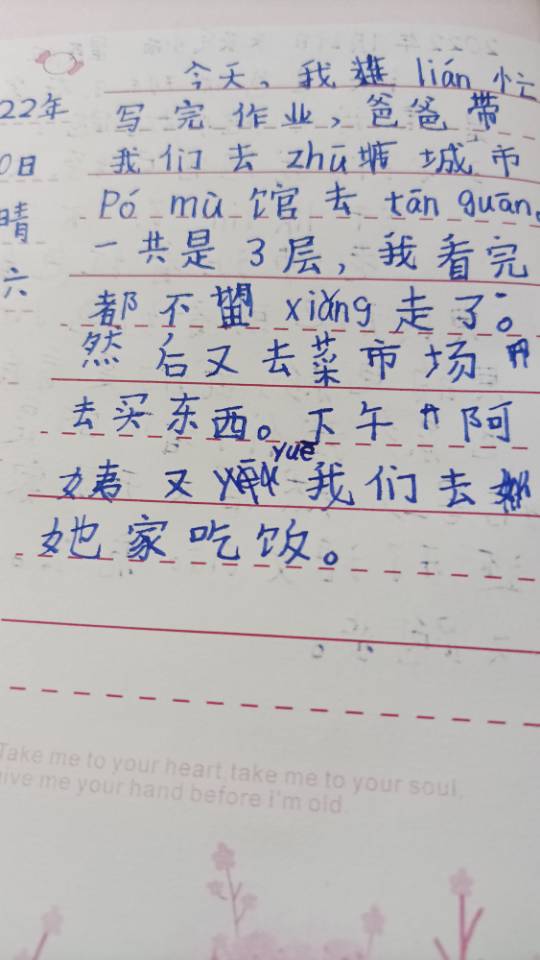 今天、我 lián 忙
22年 写完作业，爸爸带
0日 我们去 zhū 城市
晴 Pó mù 馆去 tān guān。
六 一共是3层，我看完
都不 xiǎng 走了。
然后又去菜市场
去买东西。下午阿
yuē
姨又我们去
她家吃饭。
Take me to your heart,take me to your soul.
ive me your hand before i'm old.